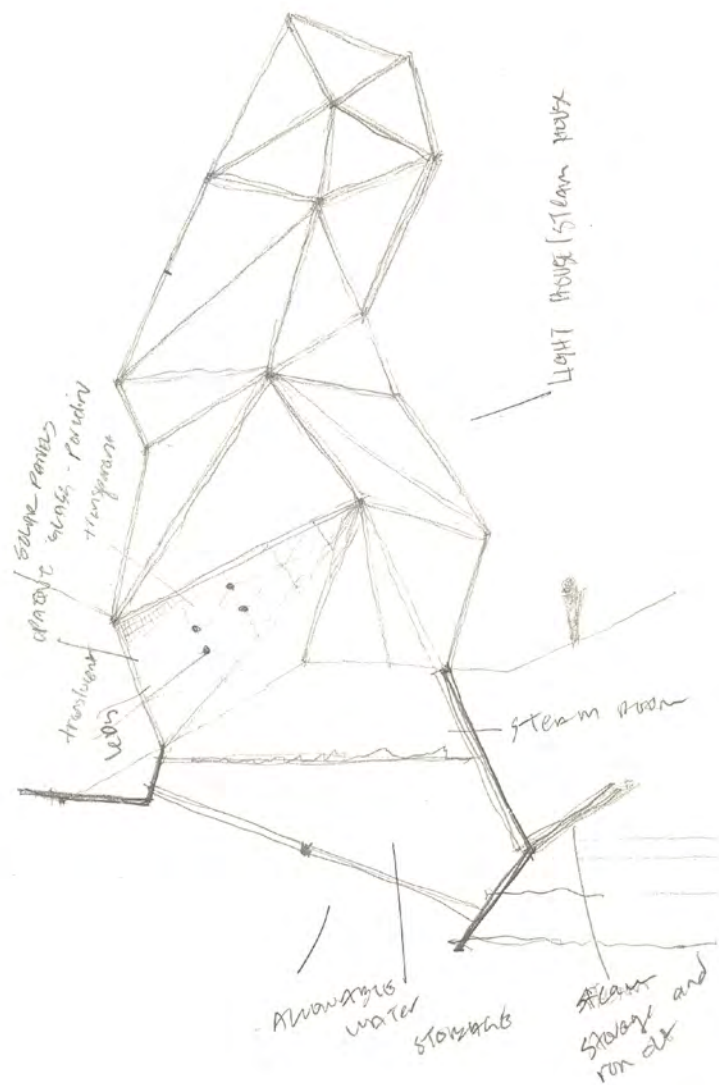 LIGHT HOUSE/STEAM HOUSE
SOLAR PANELS
OPAQUE GLASS -
transparent
translucent
LEDS
STEAM ROOM
ALLOWABLE
WATER
STORAGE
STEAM
STORAGE and
run